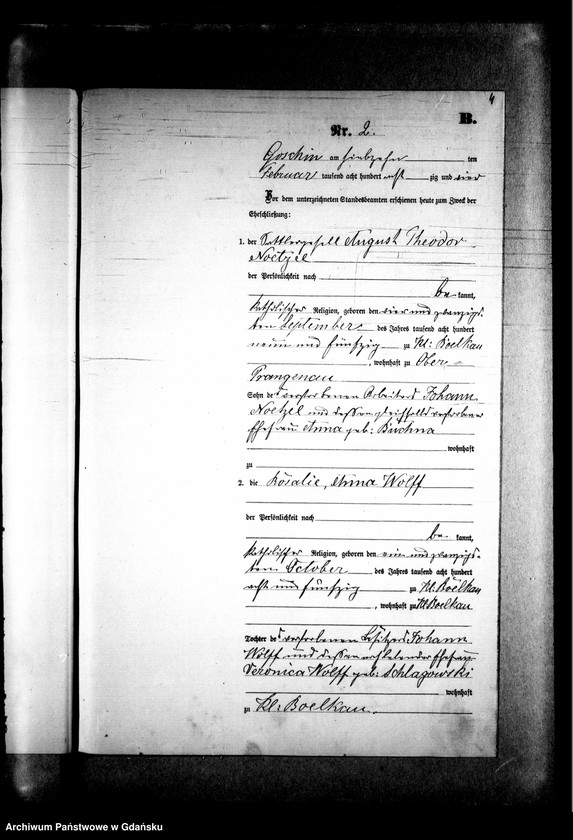 4
B.
Nr. 2.
Goschin am siebzehn ten
Februar tausend acht hundert acht zig und vier
Vor dem unterzeichneten Standesbeamten erschienen heute zum Zweck der
Eheschließung:
1. der Sattlergesell August Theodor
Noetzel
der Persönlichkeit nach
be kannt,
katholischer Religion, geboren den vier und zwanzigs-
ten September des Jahres tausend acht hundert
neun und fünfzig zu Kl: Boelkau
, wohnhaft zu Ober
Prangenau
Sohn des verstorbenen Arbeiters Johann
Noetzel und dessen gleichfalls verstorbener
Ehefrau Anna geb: Buchna
wohnhaft
zu
2. die Rosalie, Anna Wolff
der Persönlichkeit nach
be kannt,
katholischer Religion, geboren den und zwanzigs-
ten October des Jahres tausend acht hundert
acht und fünfzig zu Kl: Boelkau
, wohnhaft zu Kl: Boelkau
Tochter des verstorbenen Besitzers Johann
Wolff und dessen noch lebender Ehefrau
Veronica Wolff geb: Schlagowski
wohnhaft
zu Kl: Boelkau.
Archiwum Państwowe w Gdańsku